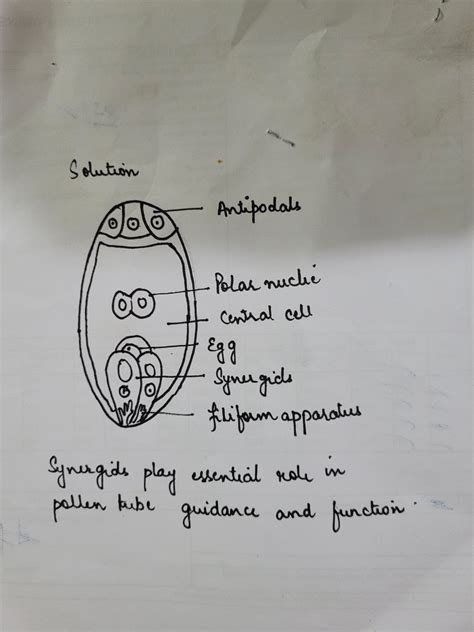 Solution
Antipodals
Polar nuclie
Central cell
Egg
Synergids
filiform apparatus
Synergids play essential role in
pollen tube guidance and function.